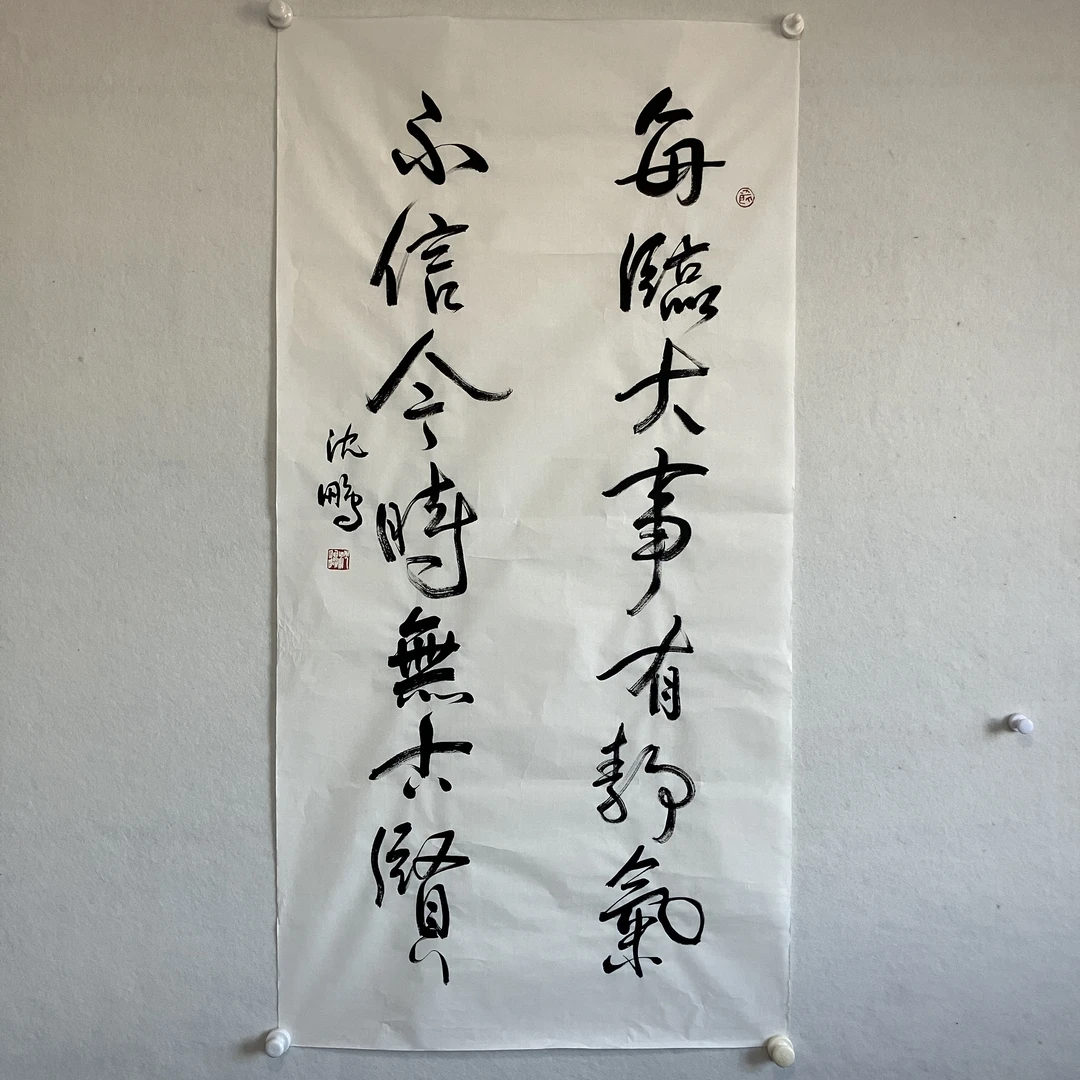 每臨大事有靜氣
不信今時無古賢
沈鵬